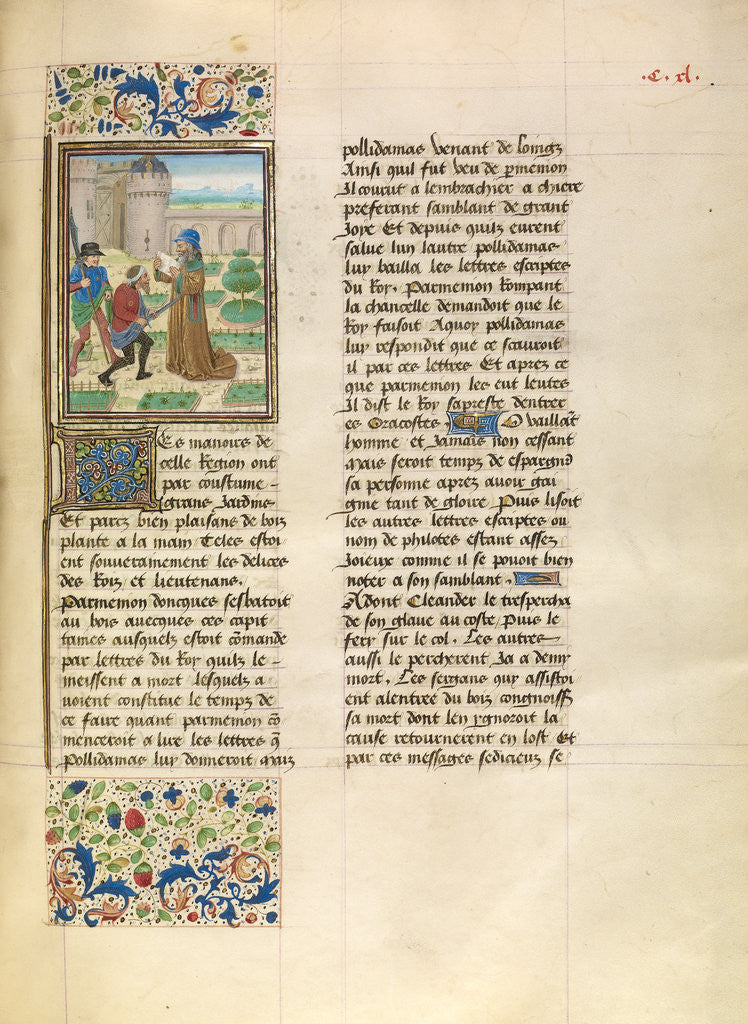 .C. xl.
Les manoirs de
celle Region ont
par coustume
grans Jardins
Et parcz bien plaisans de bois
plante a la main Celes estoi
ent souverainement les delices
des Roiz et lieutenans.
Parmenon doncques sesbatoit
au bois avecques ces capit
taines ausquelz estoit cōmande
par lettres du Roy quilz le
meissent a mort lesquelz a
voient constitue le temps de
ce faire quant parmenon cō
menceroit a lire les lettres q̄
Pollidamas luy donneroit Mais
pollidamas venant de loingz
Ainsi quil fut veu de p̄menon
Il courut a lembrachier a chiere
preferant samblant de grant
Joye Et depuis quilz eurent
salue lun lautre pollidamas
luy bailla les lettres escriptes
du Roy. Parmenon Rompant
la chancelle demandoit que le
Roy faisoit Aquoy pollidamas
luy respondit que ce scauroit
il par ces lettres Et aprez ce
que parmenon les eut leutes
Il dist le Roy sapreste dentrer
es Oracostes. O vaillāt
homme et Jamais non cessant
Mais seroit temps de espargn
sa personne aprez avoir gai
gnie tant de gloire Puis lisoit
les autres lettres escriptes ou
nom de philotes estant assez
Joieux comme il se pouoit bien
noter a son samblant.
Adont Cleander le trespercha
de son glaue au coste Puis le
fery sur le col. Les autres
aussi le percherent Ja a demy
mort. Les sergans quy assistoi
ent alentree du bois congnoiss
sa mort dont len ygnoroit la
cause retournerent en lost Et
par ces messages sedicieux se